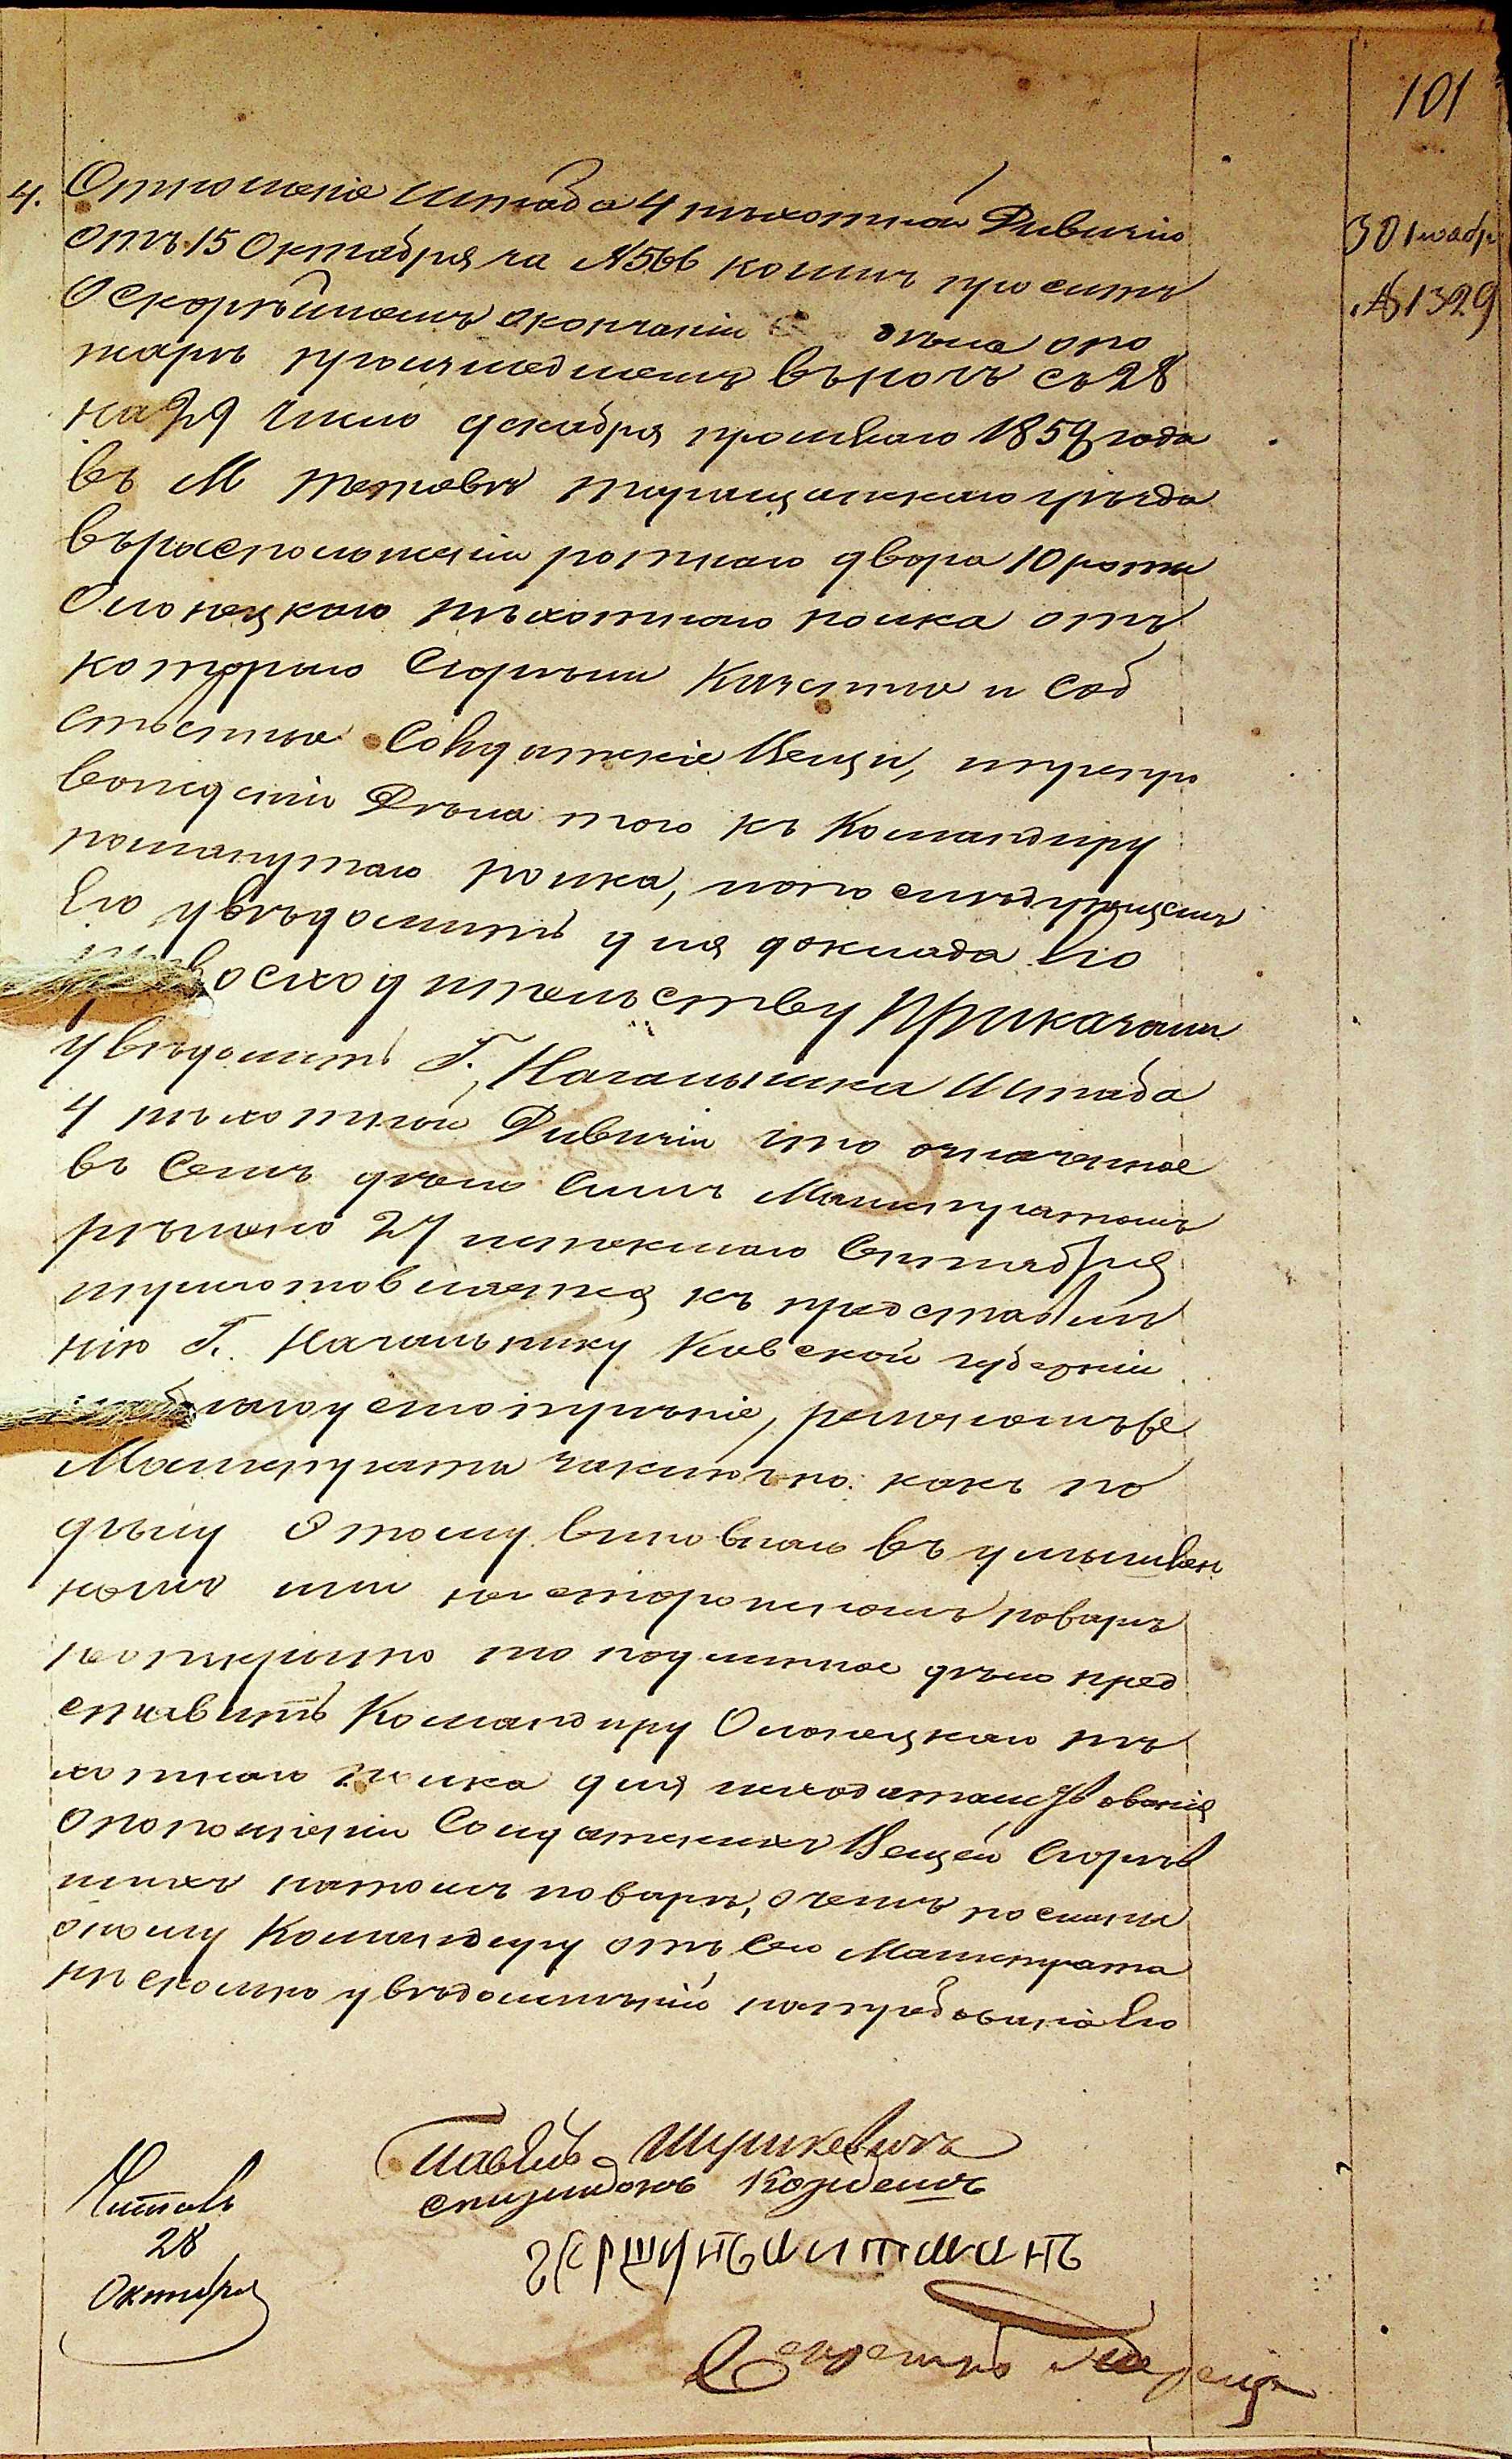 101
4. Отношеніе Штаба 4 пѣхотной Дивизіи
отъ 15 Октября за №566 коимъ проситъ
О скорѣйшемъ окончаніи дѣла о по
жарѣ произшедшемъ въ ночь съ 28
на 29 число декабря прошлаго 1859 года
въ М Тетіевѣ Таращанскаго уѣзда
въ расположеніи ротнаго двора 10 роты
Олонецкаго пѣхотнаго полка отъ
котораго Сгорѣли Казенные и Соб
ственные Солдатскіе Вещи, и препро
вожденіи Дѣла того къ Командиру
помянутаго полка, и о послѣдующемъ
Его увѣдомить для доклада Его
Превосходительству Приказали
увѣдомить Г. Начальника Штаба
4 пѣхотной Дивизіи что означенное
въ Семъ дѣло Симъ Магистратомъ
рѣшено 27 истекшаго Сентября
приготовляется къ представле
нію Г. Начальнику Кіевской губерніи
на благоусмотрѣніе, рѣшеніемъ же
Магистрата заключено: какъ по
дѣлу Этому виновнаго въ умышлен
номъ или неосторожномъ поджогѣ
не открыто то подлинное дѣло пред
ставить Командиру Олонецкаго пѣ
хотнаго полка для исходатайствованія
О пополненіи Солдатскихъ Вещей Сгорѣв
шихъ на томъ пожарѣ, о чемъ послан
оному Командиру отъ Сего Магистрата
нѣсколько увѣдомленій по требованію Его
30 Октября
№ 1329
Павелъ
Секретарь
Читалъ
28
Октября